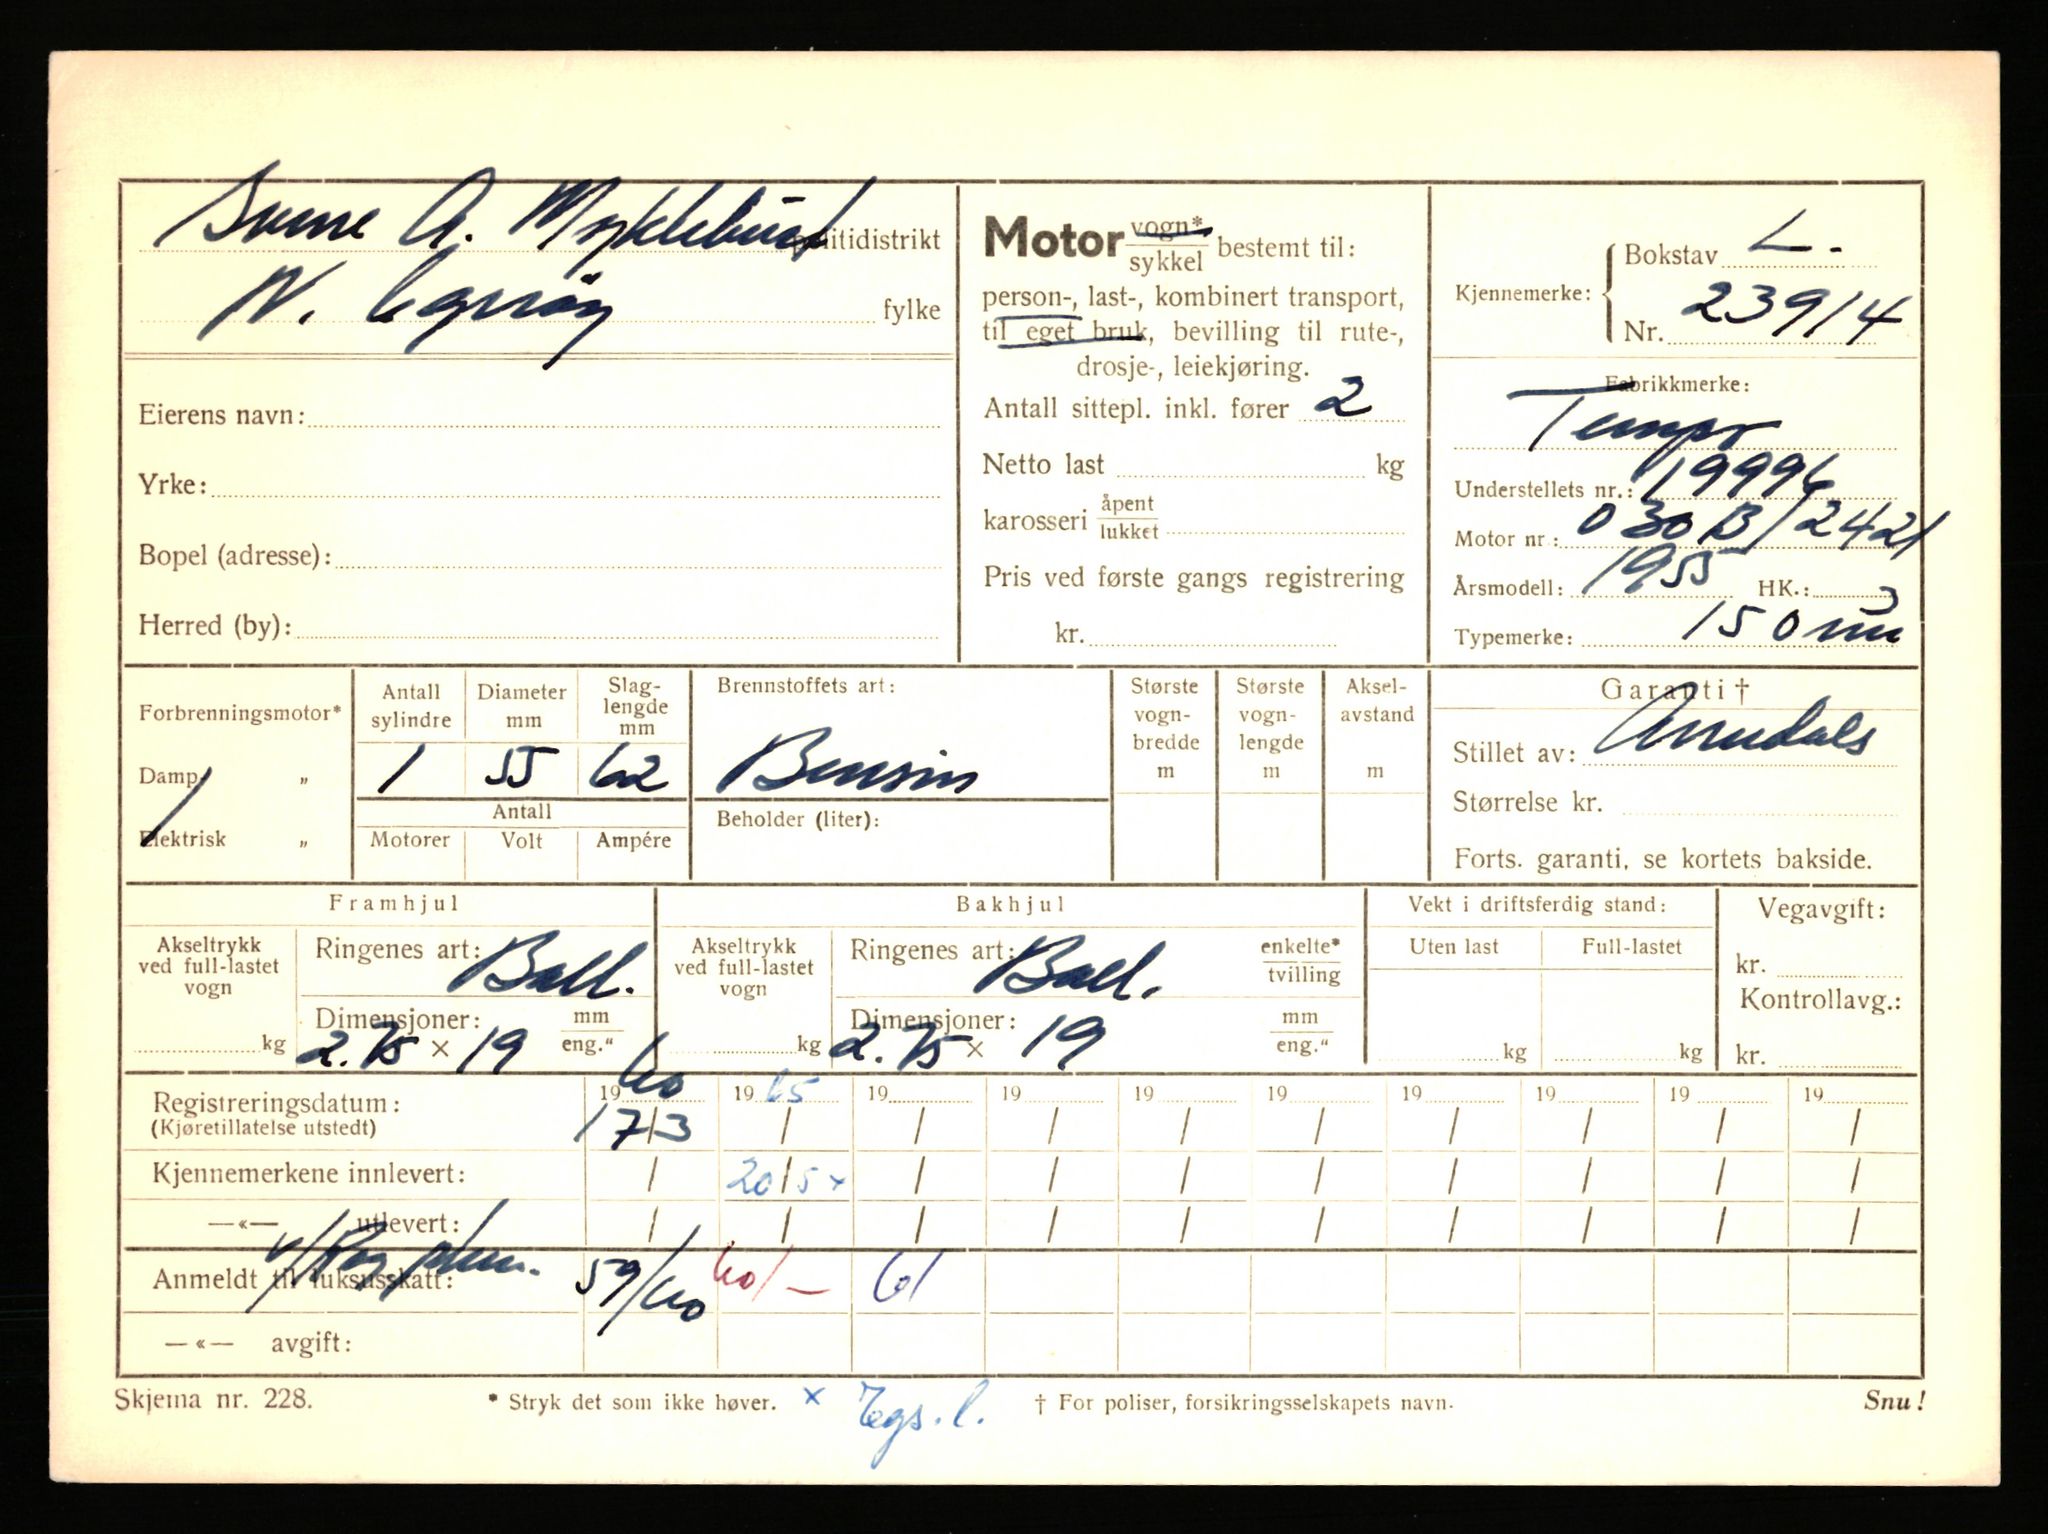 Sverre A. Myklebust politidistrikt
N. Egerøy fylke
Eierens navn:
Yrke:
Bopel (adresse):
Herred (by):
Motor vogn* / sykkel bestemt til:
person-, last-, kombinert transport,
til eget bruk, bevilling til rute-,
drosje-, leiekjøring.
Antall sittepl. inkl. fører 2
Netto last kg
karosseri åpent / lukket
Pris ved første gangs registrering
kr.
Kjennemerke: Bokstav L.
Nr. 23914
Fabrikkmerke:
Tempo
Understellets nr.: 19996
Motor nr: 030 B/2421
Årsmodell: 1955 HK.:
Typemerke: 150
Forbrenningsmotor*
Damp „
Elektrisk „
Antall sylindre Diameter mm Slag-lengde mm
1 55 62
Antall
Motorer Volt Ampére
Brennstoffets art:
Bensin
Beholder (liter):
Største vogn-bredde m
Største vogn-lengde m
Aksel-avstand m
Garanti †
Stillet av: Arendals
Størrelse kr.
Forts. garanti, se kortets bakside.
Framhjul
Akseltrykk ved full-lastet vogn kg
Ringenes art: Ball.
Dimensjoner: mm / eng."
2.75 × 19
Bakhjul
Akseltrykk ved full-lastet vogn kg
Ringenes art: Ball. enkelte* / tvilling
Dimensjoner: mm / eng."
2.75 × 19
Vekt i driftsferdig stand:
Uten last Full-lastet
kg kg
Vegavgift:
kr.
Kontrollavg.:
kr.
Registreringsdatum: 1960 1965 19 19 19 19 19 19 19 19
(Kjøretillatelse utstedt) 17/3 / / / / / / / / /
Kjennemerkene innlevert: / 20/5 × / / / / / / / /
—«— utlevert: / / / / / / / / / /
Anmeldt til luksusskatt: 59/60 60/- 61
—«— avgift:
Skjema nr. 228. * Stryk det som ikke høver. × † For poliser, forsikringsselskapets navn. Snu!